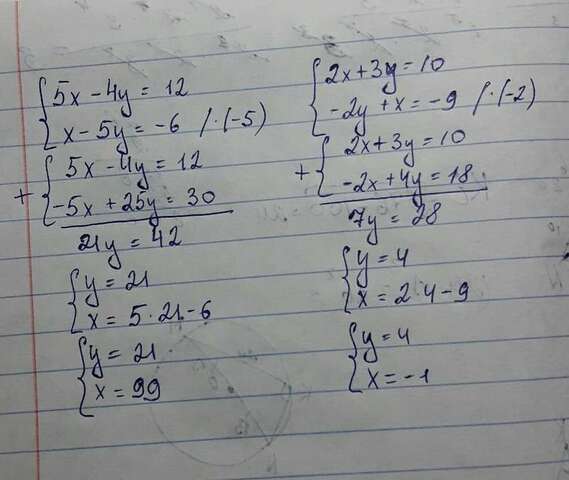 5x - 4y = 12
x - 5y = -6 /·(-5)
+ 5x - 4y = 12
-5x + 25y = 30
21y = 42
y = 21
x = 5·21-6
y = 21
x = 99
2x + 3y = 10
-2y + x = -9 /·(-2)
+ 2x + 3y = 10
-2x + 4y = 18
7y = 28
y = 4
x = 2·4-9
y = 4
x = -1